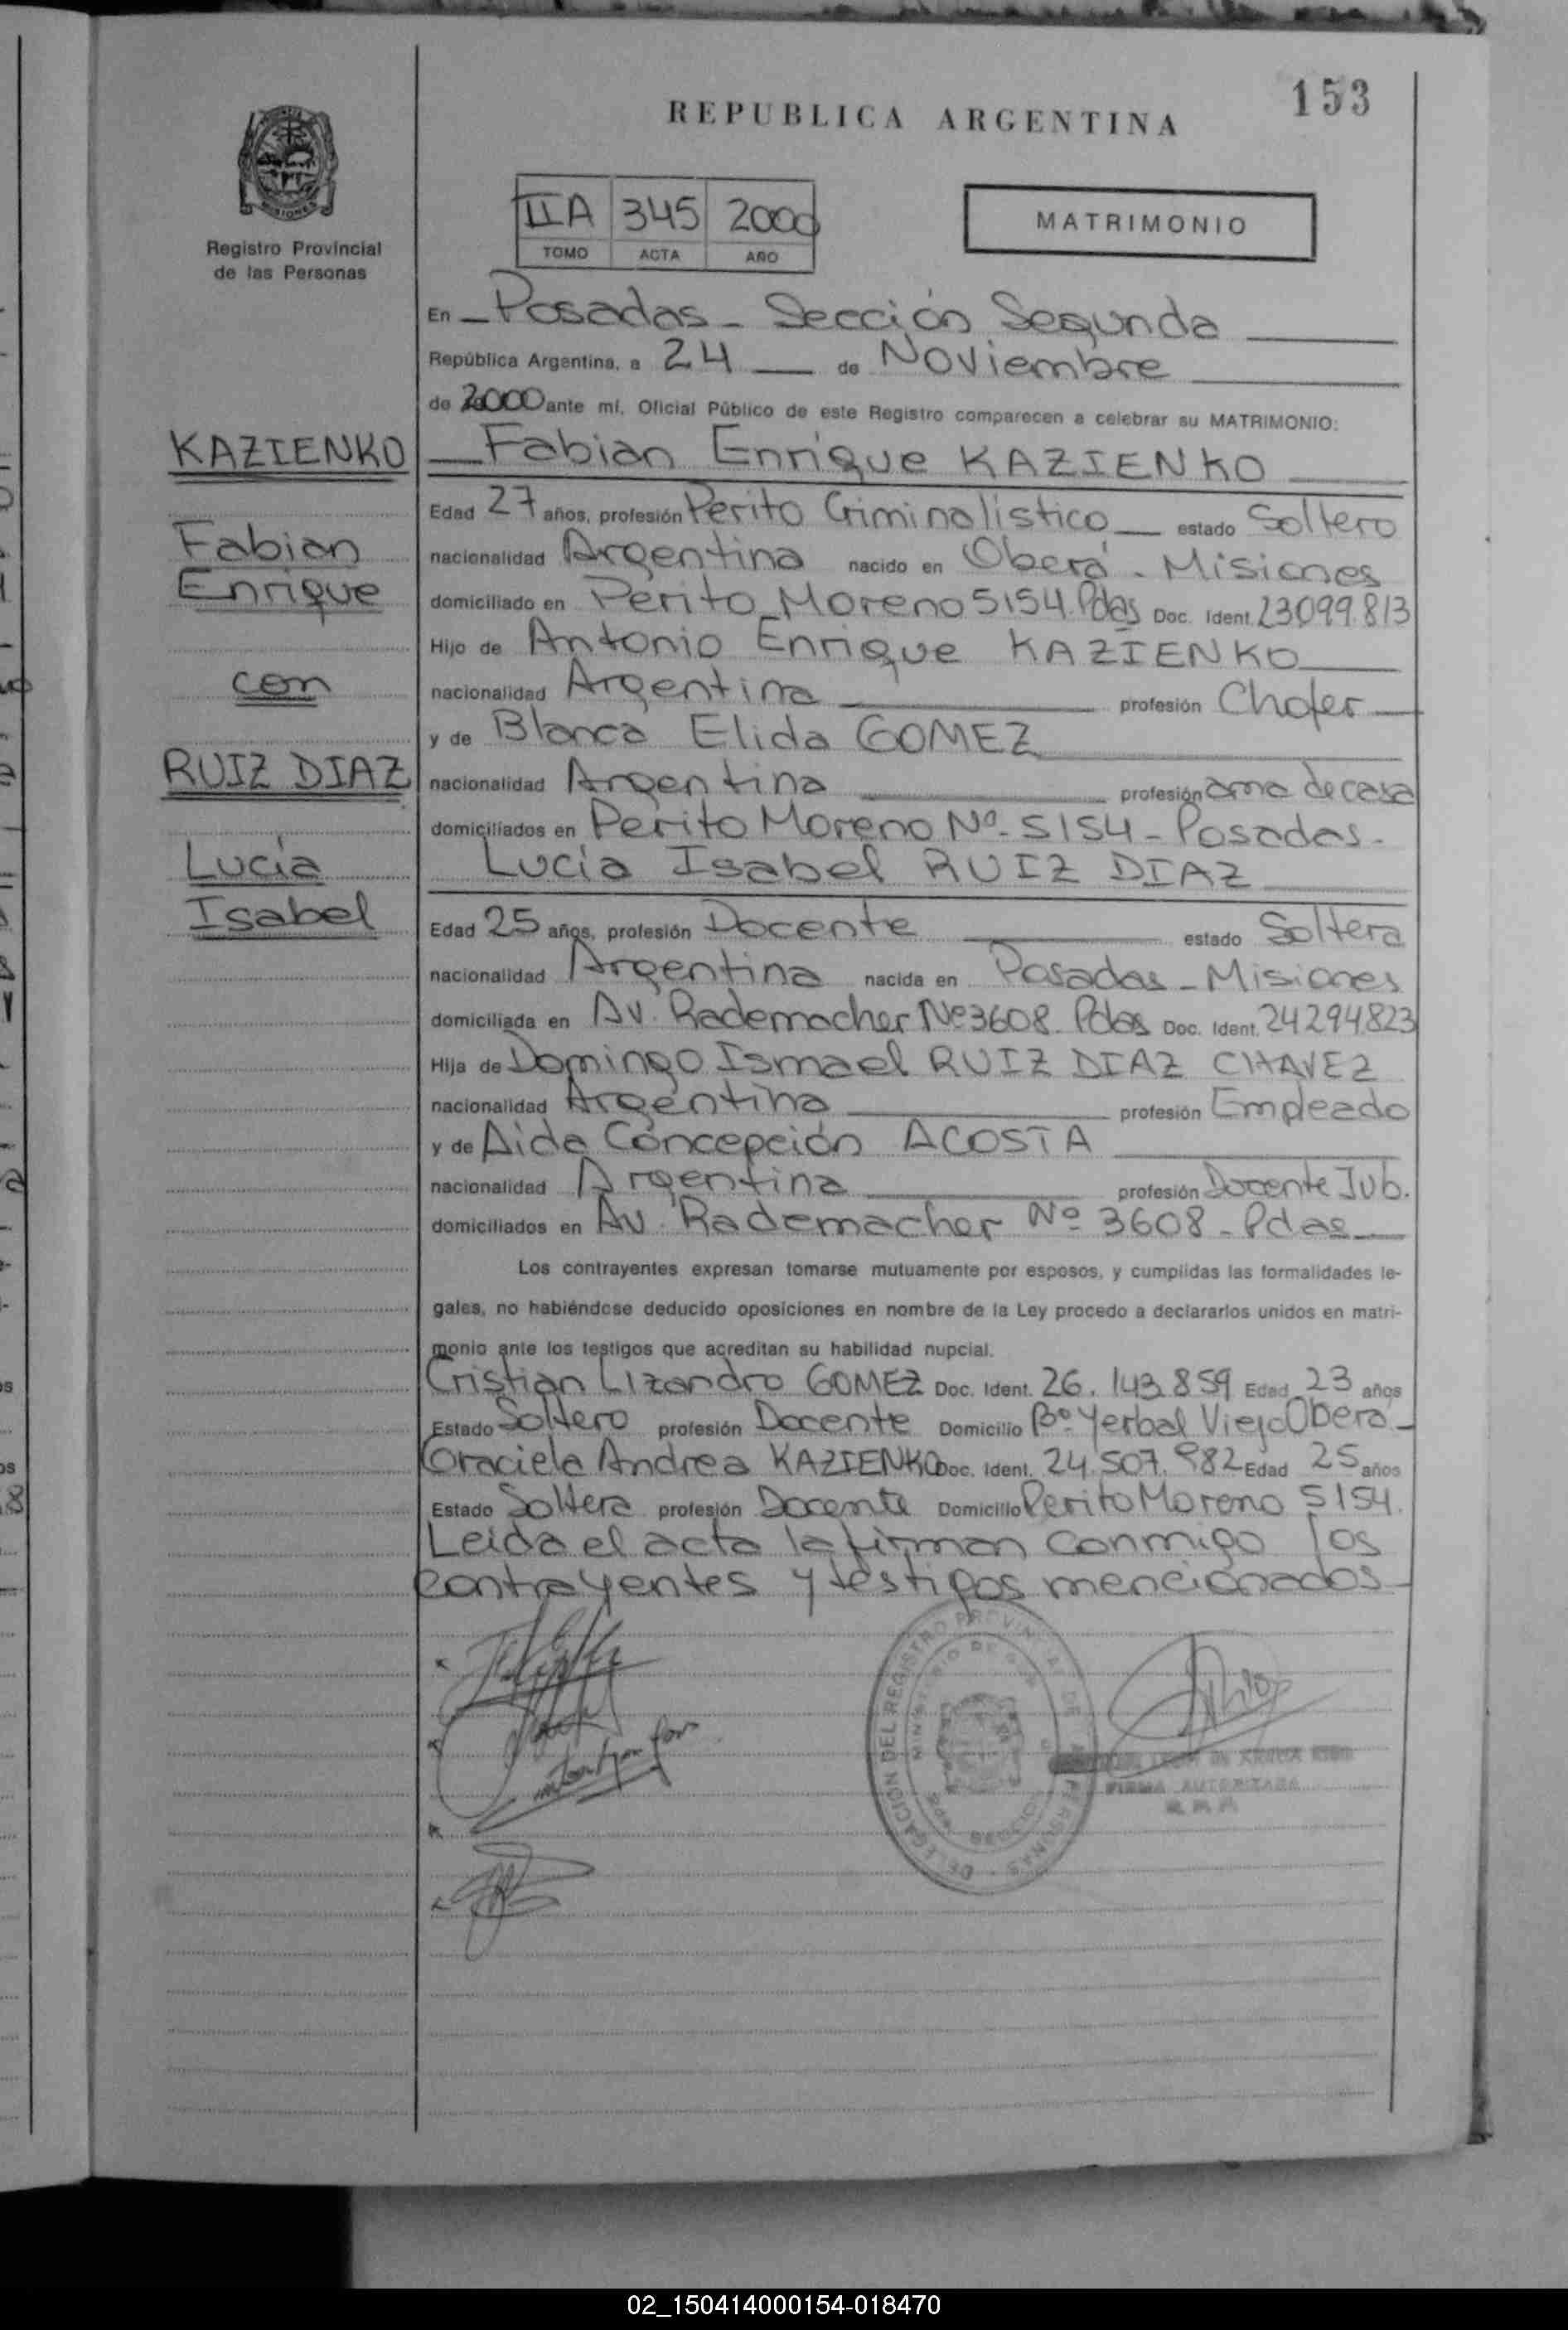 153
REPUBLICA ARGENTINA
MISIONES
Registro Provincial
de las Personas
IIA 345 2000
TOMO ACTA AÑO
MATRIMONIO
En Posadas - Sección Segunda
República Argentina, a 24 de Noviembre
de 2000 ante mí, Oficial Público de este Registro comparecen a celebrar su MATRIMONIO:
KAZIENKO
Fabian
Enrique
con
RUIZ DIAZ
Lucía
Isabel
Fabian Enrique KAZIENKO
Edad 27 años, profesión Perito Criminalístico estado Soltero
nacionalidad Argentina nacido en Oberá - Misiones
domiciliado en Perito Moreno 5154. Pdas Doc. Ident. 23.099.813
Hijo de Antonio Enrique KAZIENKO
nacionalidad Argentina profesión Chofer
y de Blanca Elida GOMEZ
nacionalidad Argentina profesión ama de casa
domiciliados en Perito Moreno Nº - 5154 - Posadas -
Lucía Isabel RUIZ DIAZ
Edad 25 años, profesión Docente estado Soltera
nacionalidad Argentina nacida en Posadas - Misiones
domiciliada en Av. Rademacher Nº 3608. Pdas Doc. Ident. 24294823
Hija de Domingo Ismael RUIZ DIAZ CHAVEZ
nacionalidad Argentina profesión Empleado
y de Aida Concepción ACOSTA
nacionalidad Argentina profesión Docente Jub.
domiciliados en Av. Rademacher Nº 3608 - Pdas
Los contrayentes expresan tomarse mutuamente por esposos, y cumplidas las formalidades le-
gales, no habiéndose deducido oposiciones en nombre de la Ley procedo a declararlos unidos en matri-
monio ante los testigos que acreditan su habilidad nupcial.
Cristian Lizandro GOMEZ Doc. Ident. 26.143.859 Edad 23 años
Estado Soltero profesión Docente Domicilio Bº Yerbal Viejo Oberá -
Graciela Andrea KAZIENKO Doc. Ident. 24.507.982 Edad 25 años
Estado Soltera profesión Docente Domicilio Perito Moreno 5154.
Leida el acta la firman conmigo los
contrayentes y testigos mencionados
DELEGACION DEL REGISTRO PROVINCIAL DE PERSONAS
MINISTERIO DE
FIRMA AUTORIZADA
02_150414000154-018470